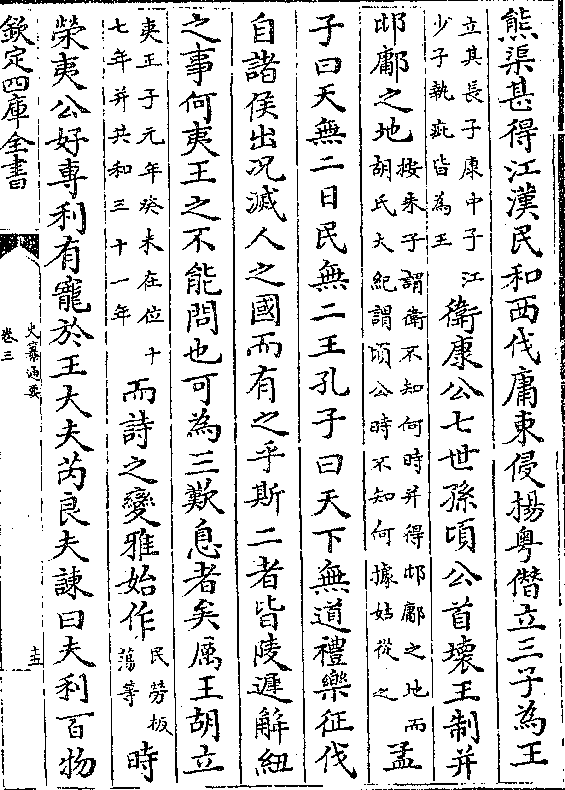 熊渠甚得江漢民和西伐庸東侵揚粤僭立三子為王
立其長子康中子江
少子執疵皆為王
衛康公七世孫頃公首壊王制并
邶鄘之地
按朱子謂衛不知何時并得邶鄘之地而
胡氏大紀謂頃公時不知何據姑從之
孟
子曰天無二日民無二王孔子曰天下無道禮樂征伐
自諸侯出况滅人之國而有之乎斯二者皆陵遲解紐
之事何夷王之不能問也可為三歎息者矣厲王胡立
夷王子元年癸未在位十
七年并共和三十一年
而詩之變雅始作
民勞板
蕩等
時
榮夷公好専利有寵於王大夫芮良夫諫曰夫利百物
欽定四庫全書
史纂通要
卷三